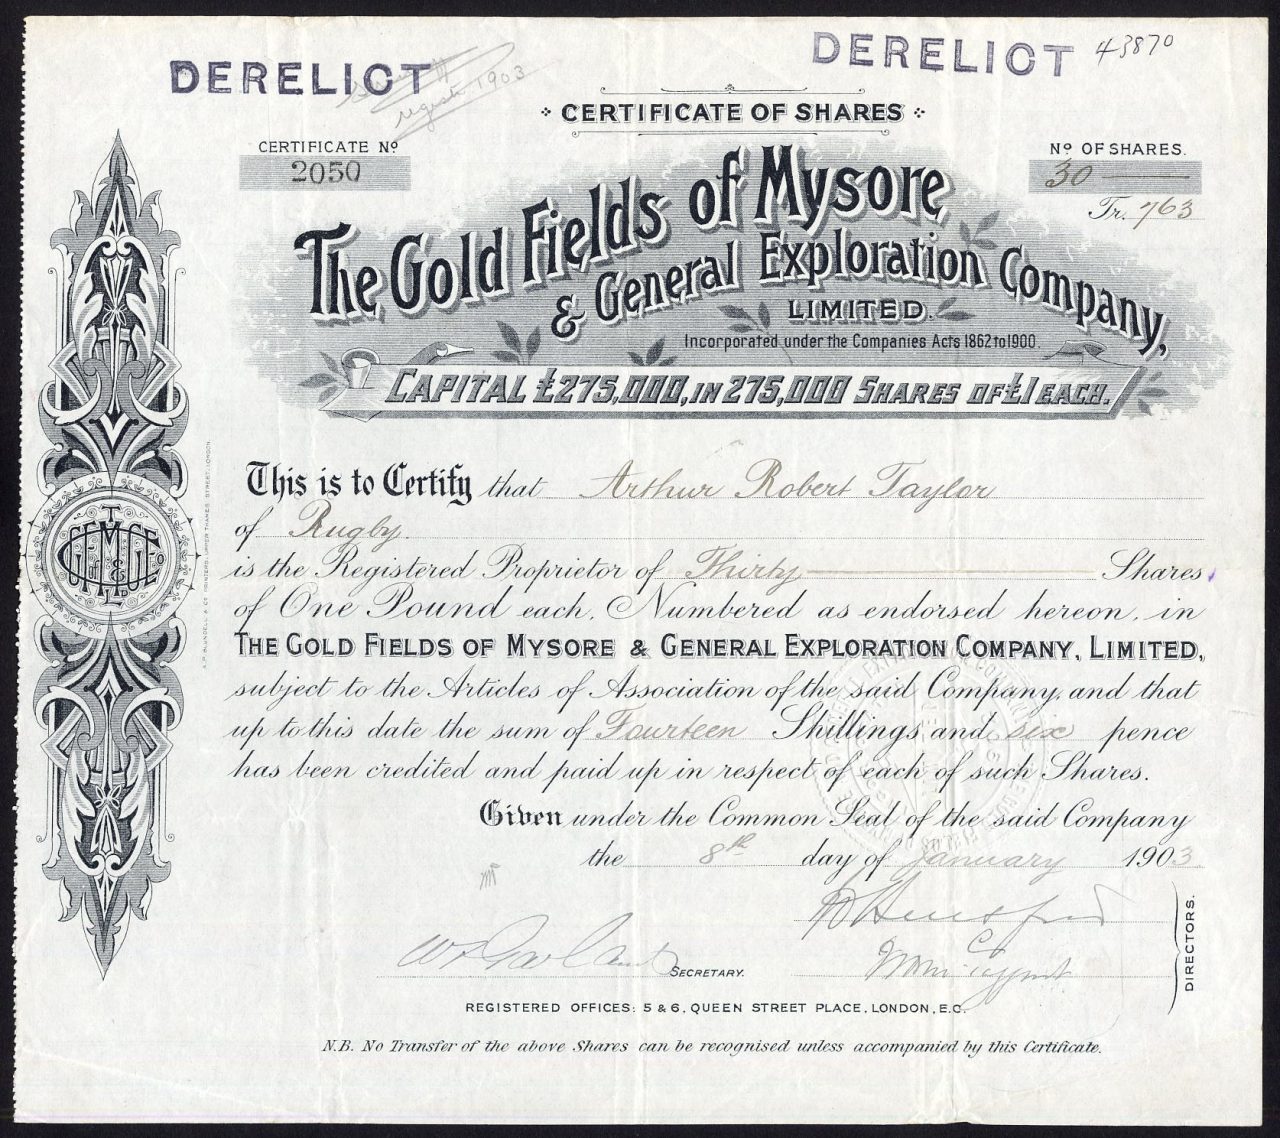 DERELICT
DERELICT 43870
1903
CERTIFICATE OF SHARES
CERTIFICATE Nº
2050
Nº OF SHARES.
30
Tr. 763
The Gold Fields of Mysore
& General Exploration Company,
LIMITED.
Incorporated under the Companies Acts 1862 to 1900.
CAPITAL £275,000, IN 275,000 SHARES OF £1 EACH.
This is to Certify that Arthur Robert Taylor
of Rugby.
is the Registered Proprietor of Thirty Shares
of One Pound each, Numbered as endorsed hereon, in
THE GOLD FIELDS OF MYSORE & GENERAL EXPLORATION COMPANY, LIMITED,
subject to the Articles of Association of the said Company, and that
up to this date the sum of Fourteen Shillings and six pence
has been credited and paid up in respect of each of such Shares.
Given under the Common Seal of the said Company
the 8th day of January 1903
SECRETARY.
DIRECTORS.
REGISTERED OFFICES: 5 & 6, QUEEN STREET PLACE, LONDON, E.C.
N.B. No Transfer of the above Shares can be recognised unless accompanied by this Certificate.